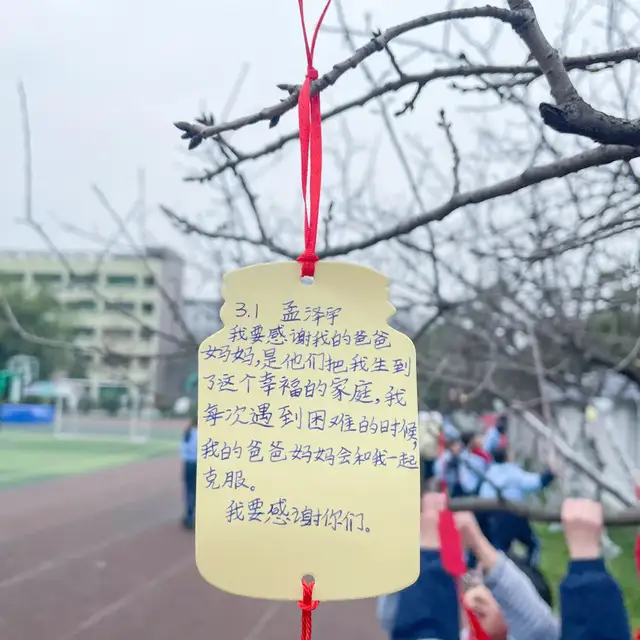 3.1 孟泽宇
我要感谢我的爸爸
妈妈,是他们把我生到
了这个幸福的家庭,我
每次遇到困难的时候,
我的爸爸妈妈会和我一起
克服。
我要感谢你们。